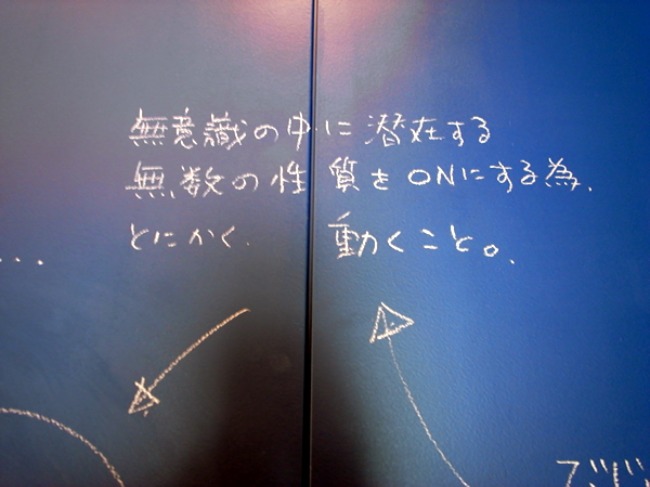 無意識の中に潜在する
無数の性質をONにする為、
とにかく、動くこと。
...